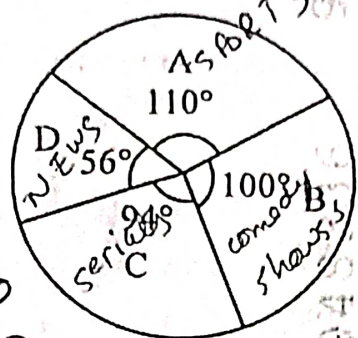 A SPORTS
110°
D
NEWS
56°
100°
B
comedy
shows
serials
C